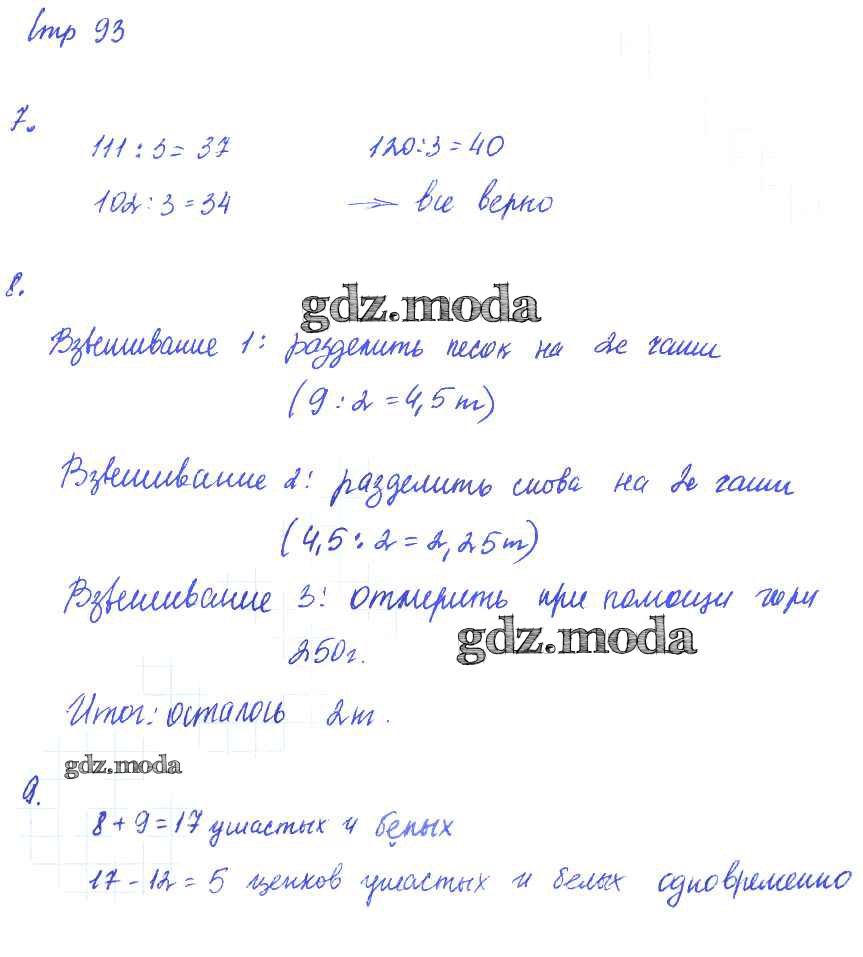 Стр 93
7.
111 : 3 = 37 120 : 3 = 40
102 : 3 = 34 → все верно
8.
gdz.moda
Взвешивание 1: разделить песок на 2е чаши
(9 : 2 = 4,5 кг)
Взвешивание 2: разделить снова на 2е чаши
(4,5 : 2 = 2,25 кг)
Взвешивание 3: отмерить при помощи гири
gdz.moda
250г.
Итог: осталось 2 кг.
gdz.moda
9.
8 + 9 = 17 ушастых и белых
17 - 12 = 5 щенков ушастых и белых одновременно